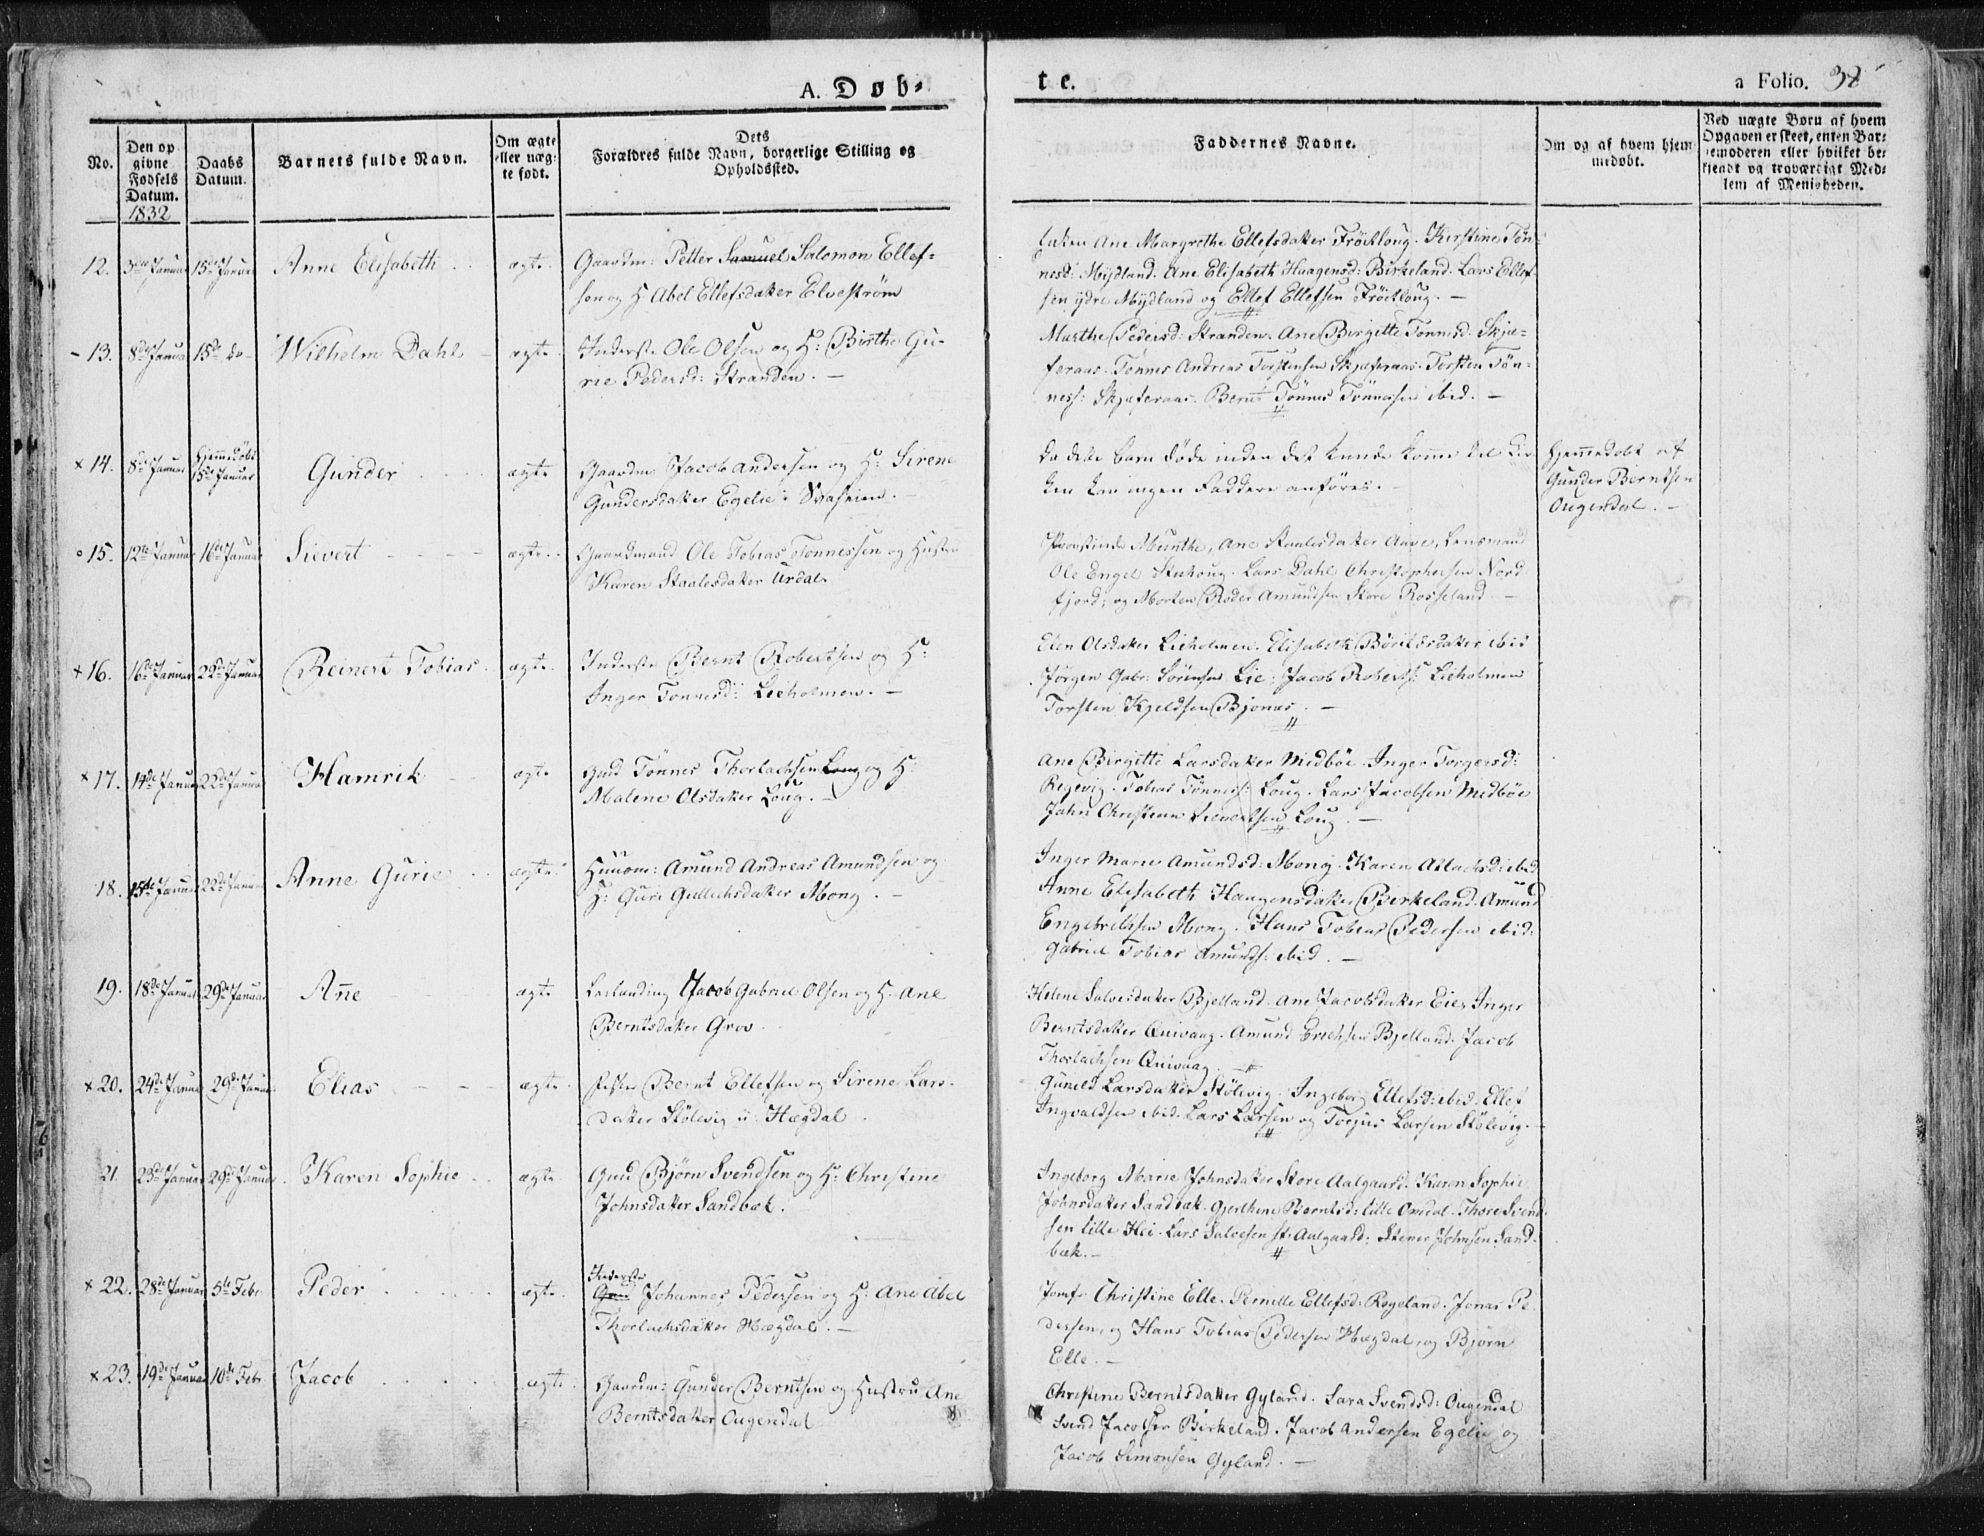 A. Døb-
te.
a Folio. 38
No.
Den op
givne
Fødsels
Datum.
1832
Daabs
Datum.
Barnets fulde Navn.
Om ægte
eller uæg-
te født.
Dets
Forældres fulde Navn, borgerlige Stilling og
Opholdssted.
Faddernes Navne.
Om og af hvem hjem
medøbt.
Ved uægte Børn af hvem
Opgaven er skeet, enten Bar-
nemoderen eller hvilket be-
kjendt og troværdigt Med-
lem af Menigheden.
12. 3die Januar 15de Januar Anne Elisabeth . . ægte. Gaardm: Petter Samuel Salomon Ellef-
sen og H: Abel Ellefsdatter Elvestrøm
Ane Margrethe Ellefsdatter Frøitloug. Kirstine Tøn-
nesd: Mydland. Ane Elisabeth Haagensd: Birkeland. Lars Ellef-
sen ydre Mydland og Ellef Ellefsen Frøitloug. —
- 13. 8de Januar 15de do - Wilhelm Dahl - ægte Inderste Ole Olsen og H: Birthe Gu-
rie Pedersd: Stranden. —
Marthe Pedersd: Stranden. Ane Birgitte Tønnesd: Skjæ-
feraas. Tønnes Andreas Torstensen Skjæferaas. Torsten Tøn-
ness: Skjæferaas. Bernt Tønnes Tønnessen ibid. —
x 14. 8de Januar Hjemmedøbt
15de Januar Gunder . . ægte Gaardm: Jacob Andersen og H: Sirene
Gundersdatter Egelie i Svaheien.
Da dette Barn døde inden det kunde komme til Kir
ken kan ingen Faddere anføres. -
Hjemmedøbt af
Gunder Berntsen
Ougendal. —
o 15. 12te Januar 16de Januar Sievert - - - - ægte. Gaardmand Ole Tobias Tønnessen og Hustru
Karen Staalesdatter Urdal.
Provstinde Munthe, Ane Staalesdatter Aase, Lensmand
Ole Engel Stuhoug. Lars Dahl Christophersen Nord
fjord, og Morten Peder Amundsen Store Rosseland. —
x 16. 16de Januar 22de Januar Reinert Tobias. ægte. Inderste Bernt Robertsen og H:
Inger Tønnesd: Lieholmen. —
Elen Olsdatter Lieholmen. Elisabeth Børildsdatter ibid
Jørgen Gabr: Sørensen Lie. Jacob Roberts: Lieholmen
Torsten Kjeldsen Bjonas. —
x 17. 14de Januar 22de Januar Hamrik - ægte Gmd Tønnes Thorlachsen Loug og H:
Malene Olsdatter Loug. —
Ane Birgitte Larsdatter Midbøe. Inger Torgersd:
Regevig. Tobias Tønness: Loug. Lars Jacobsen Midbøe
John Christian Sievertsen Loug. —
18. 15de Januar 22de Januar Anne Gurie . . ægte. Huusm: Amund Andreas Amundsen og
H: Guri Gullichsdatter Mong. —
Inger Marie Amundsd: Mong. Karen Aslachsd: ibid
Anne Elisabeth Haagensdatter Birkeland. Amund
Engebrethsen Mong. Hans Tobias Pedersen ibid:
Gabriel Tobias Amunds: ibid. —
19. 18de Januar 29de Januar Anne - - ægte Leilænding Jacob Gabriel Olsen og H: Ane
Berntsdatter Grov.
Helene Salvesdatter Bjelland. Ane Jacobsdatter Eie. Inger
Berntsdatter Qvivaag. Amund Erichsen Bjelland. Jacob
Thorlachsen Qvivaag. —
x 20. 24de Januar 29de Januar Elias - - - ægte. Fester Bernt Ellefsen og Sirene Lars-
datter Stølevig ɔ: Hægdal.
Guneld Larsdatter Stølevig. Ingeborg Ellefsd: ibid. Ellef
Ingvaldsen ibid. Lars Larsen og Torjus Larsen Stølevig. -
21. 23de Januar 29de Januar Karen Sophie . . ægte. Gmd Bjørn Svendsen og H: Christine
Johnsdatter Sandbæk.
Ingeborg Marie Johnsdatter Store Aalgaard. Karen Sophie
Johnsdatter Sandbæk. Gjerthine Berntsd: lille Omdal. Thore Svend
sen lille Hei. Lars Salvesen st: Aalgaard, Stener Johnsen Sand-
bæk. —
x 22. 28de Januar 5te Febr. Peder . . . . . ægte. Inderste
Gmd Johannes Pedersen og H: Ane Abel
Thorlachsdatter Hægdal. —
Jomfr Christine Elle. Pernille Ellefsd: Regeland. Jonas Pe-
dersen, og Hans Tobias Pedersen Hægdal, og Bjørn
Elle. —
x 23. 19de Januar 10de Febr. Jacob . . . . . ægte. Gaardm: Gunder Berntsen og Hustru Ane
Berntsdatter Ougendal
Christine Berntsdatter Gyland. Sara Svendsd: Ougendal
Svend Jacobsen Birkeland. Jacob Andersen Egelie og
Jacob Simonsen Gyland. —